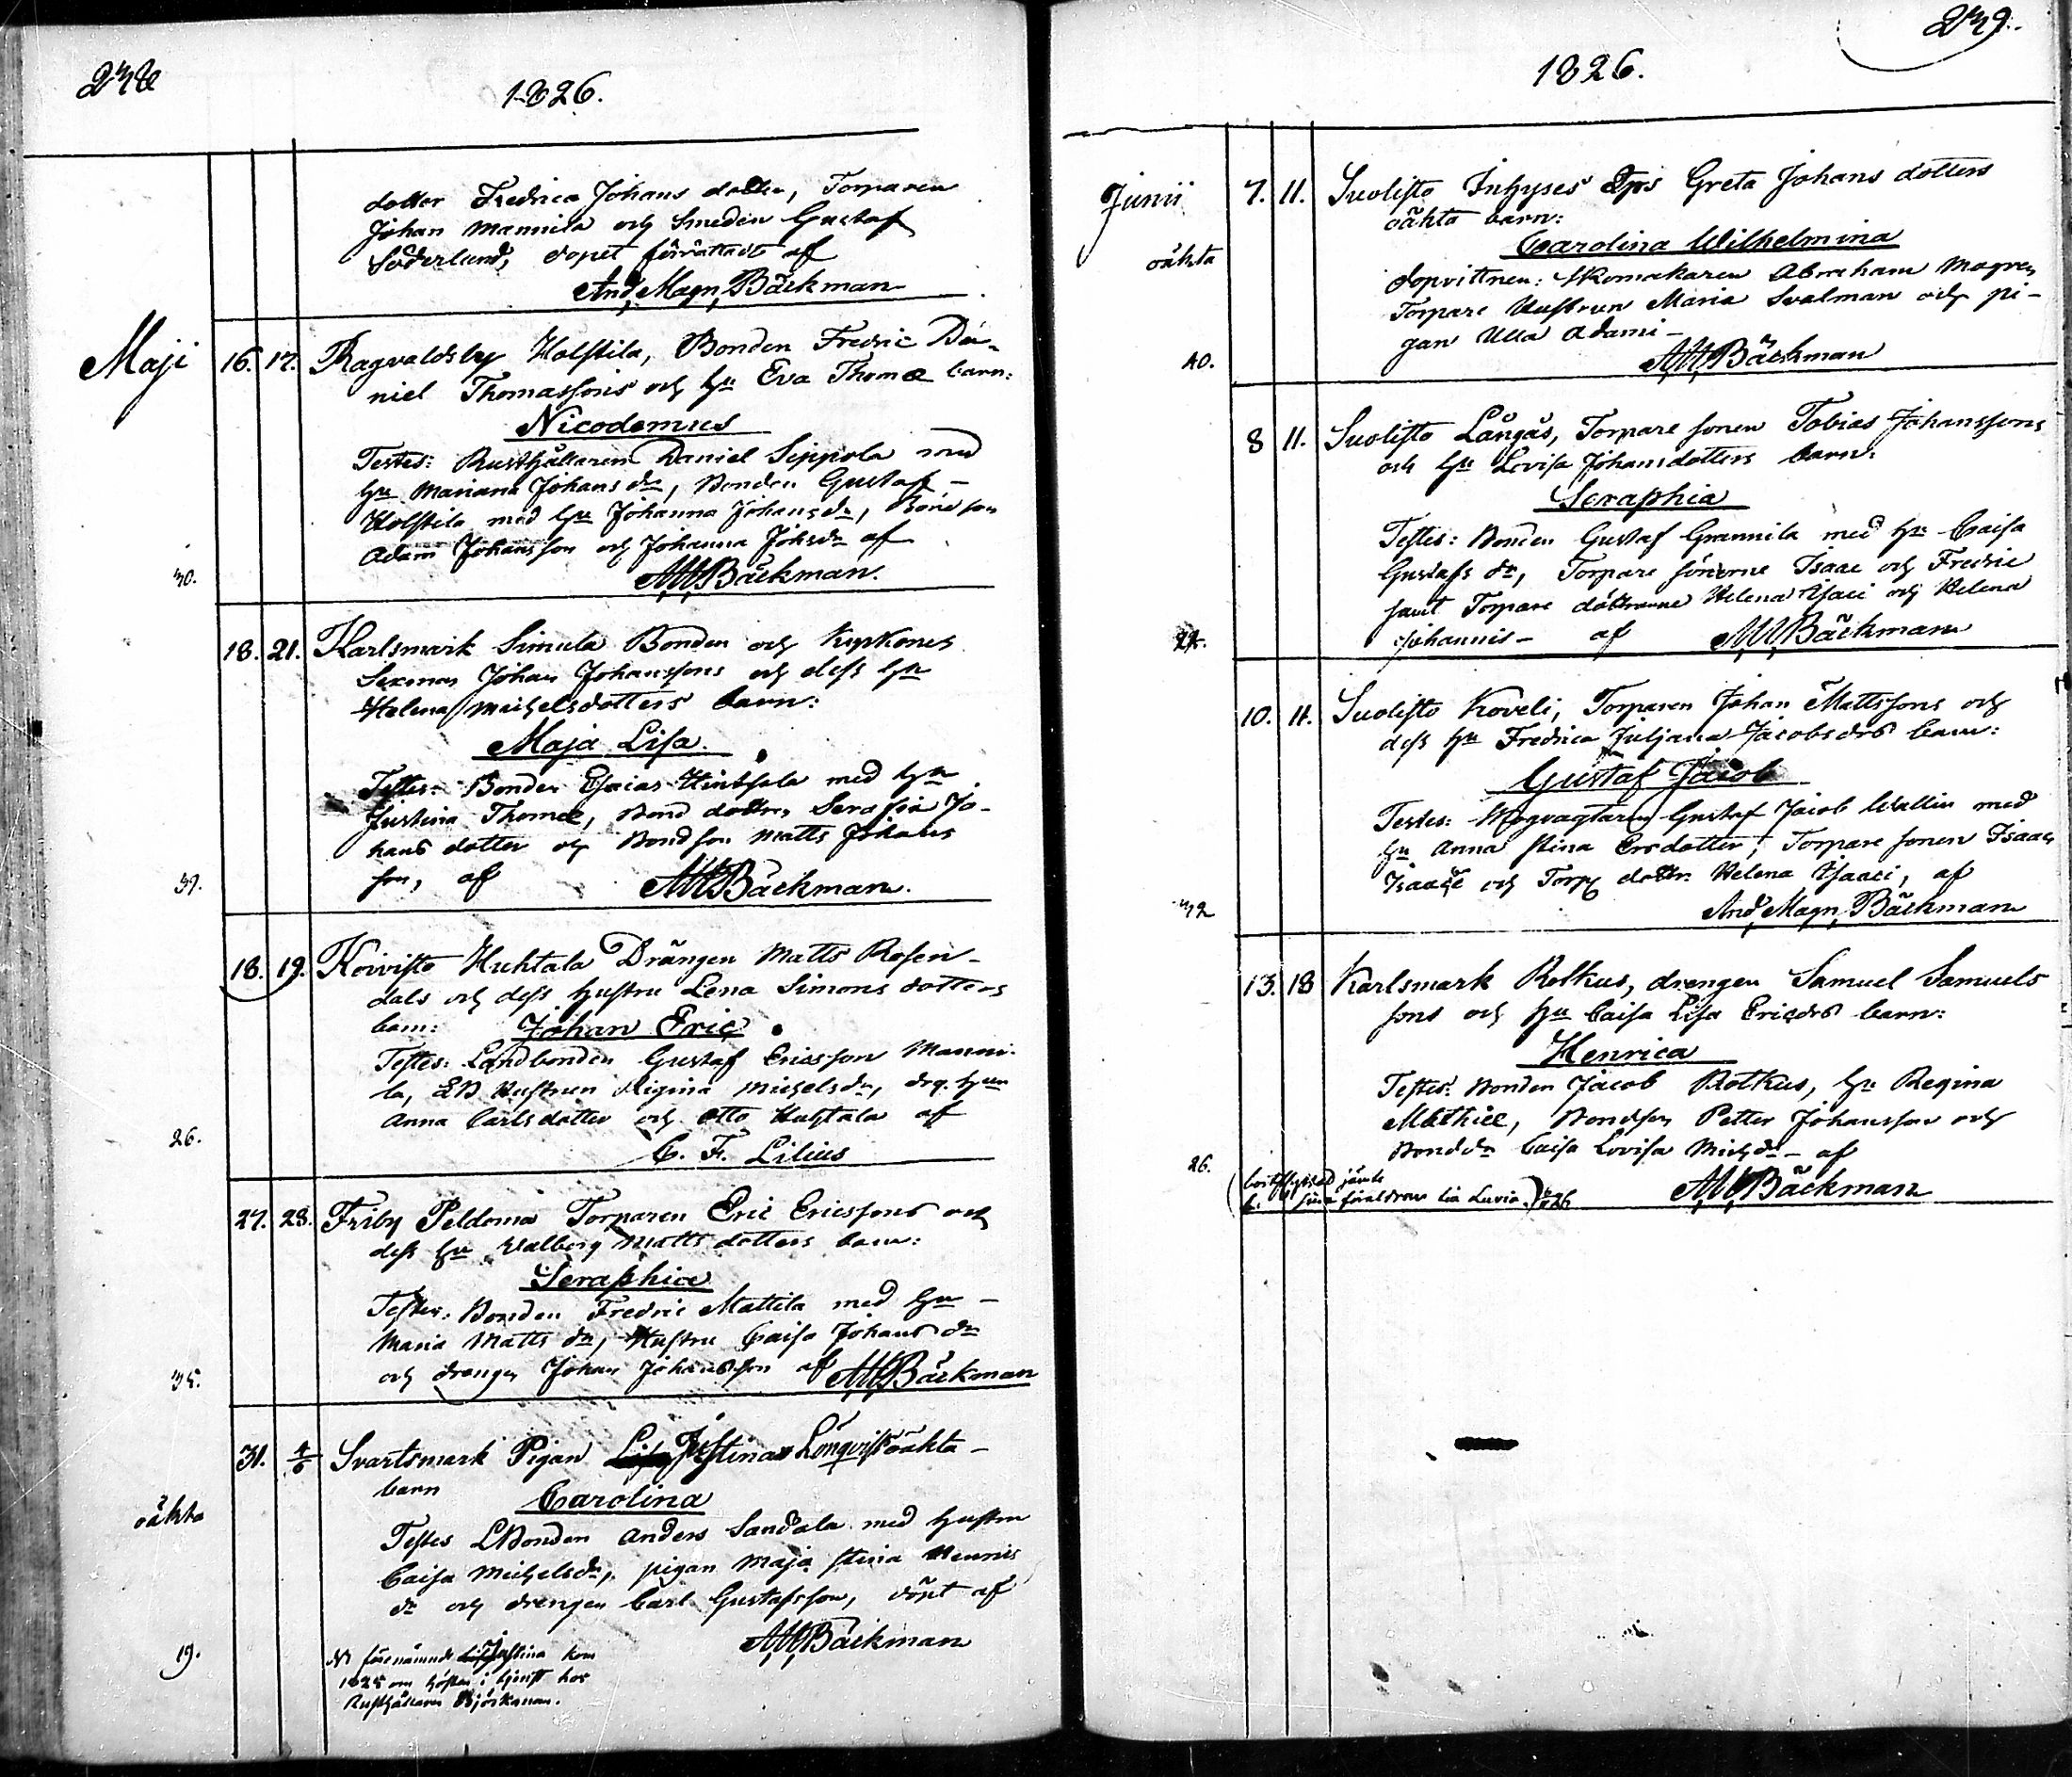 238
1826.
dotter Fredrica Johans dotter, Torparen
Johan Mannila och Smeden Gustaf
Söderlund, dopet förrättadt af
And. Magn. Bäckman
Maji 16. 17. Ragvaldsby Holstila, Bonden Fredric Da-
niel Thomassons och hu Eva Thomæ barn:
Nicodemus
Testes: Rusthållaren Daniel Sippola med
hu Mariana Johans dr, Bonden Gustaf
Holstila med hu Johanna Johansdr, Bondson
Adam Johansson och Johanna Johsdr af
30. AMBäckman.
18. 21. Karlsmark Simula Bonden och Kyrkones
Sexman Johan Johanssons och dess hu
Helena Michelsdotters barn:
Maja Lisa.
Testes: Bonden Esaias Hintsala med hu
Justina Thomæ, Bond dottren Serafia Jo-
hans dotter och Bondson Matts Johans
son, af AMBäckman.
39.
18. 19. Koivisto Huhtala Drängen Matts Rosen-
dals och dess hustru Lena Simons dotters
barn: Johan Eric
Testes: Landbonden Gustaf Ericsson Manni-
la, LB Hustrun Regina Michelsdr, drg. hun
Anna Carlsdotter och Otto Huhtala af
26. C. F. Lilius
27. 28. Friby Peldoma Torparen Eric Ericssons och
dess hu Walborg Matts dotters barn:
Seraphia
Testes: Bonden Fredric Mattila med hu
Maria Matts dr, Hustru Caisa Johans dr
och drengen Johan Johansson af AMBäckman
35.
31. 4/6 Svartsmark Pigan Justina Lönqvist oäkta
barn
Carolina
oäkta
Testes LBonden Anders Sandala med hustru
Caisa Michelsdr, pigan Maja Stina Henrics
dr och drengen Carl Gustafsson, döpt af
AMBäckman
19.
NB förenämnde Justina kom
1825 om hösten i tjenst hos
Rusthållaren Björkman.
239.
1826.
Junii 7. 11. Suolisto Inhyses Qps Greta Johans dotters
oäkta barn:
oäkta
Carolina Wilhelmina
dopvittnen: Skomakaren Abraham Magren
Torpare Hustrun Maria Svalman och pi-
gan Ulla Adami
40. AMBäckman
8 11. Suolisto Långås, Torpare sonen Tobias Johanssons
och hu Lovisa Johansdotters barn:
Seraphia
Testes: Bonden Gustaf Grannila med hu Caisa
Gustafs dr, Torpare sönerne Isaac och Fredric
samt Torpare döttrarne Helena Isaci och Helena
Johannis af AMBäckman
10. 11. Suolisto Koveli, Torparen Johan Mattssons och
dess hu Fredrica Juliana Jacobsdrs barn:
Gustaf Jacob
Testes: Skogvagtaren Gustaf Jacob Wallin med
hu Anna Stina Ersdotter, Torpare sonen Isaac
Isaaci och Torp dottr. Helena Isaaci, af
32 And. Magn. Bäckman
13. 18 Karlsmark Rotkus, drengen Samuel Samuels
sons och hu Caisa Lisa Ericsdrs barn:
Henrica
Testes: Bonden Jacob Rotkus, hu Regina
Mathiæ, Bondson Petter Johansson och
Bonddr Caisa Lovisa Michdr af
26. AMBäckman
(bortflyttad jämte
sina föräldrar till Luvia.) 26